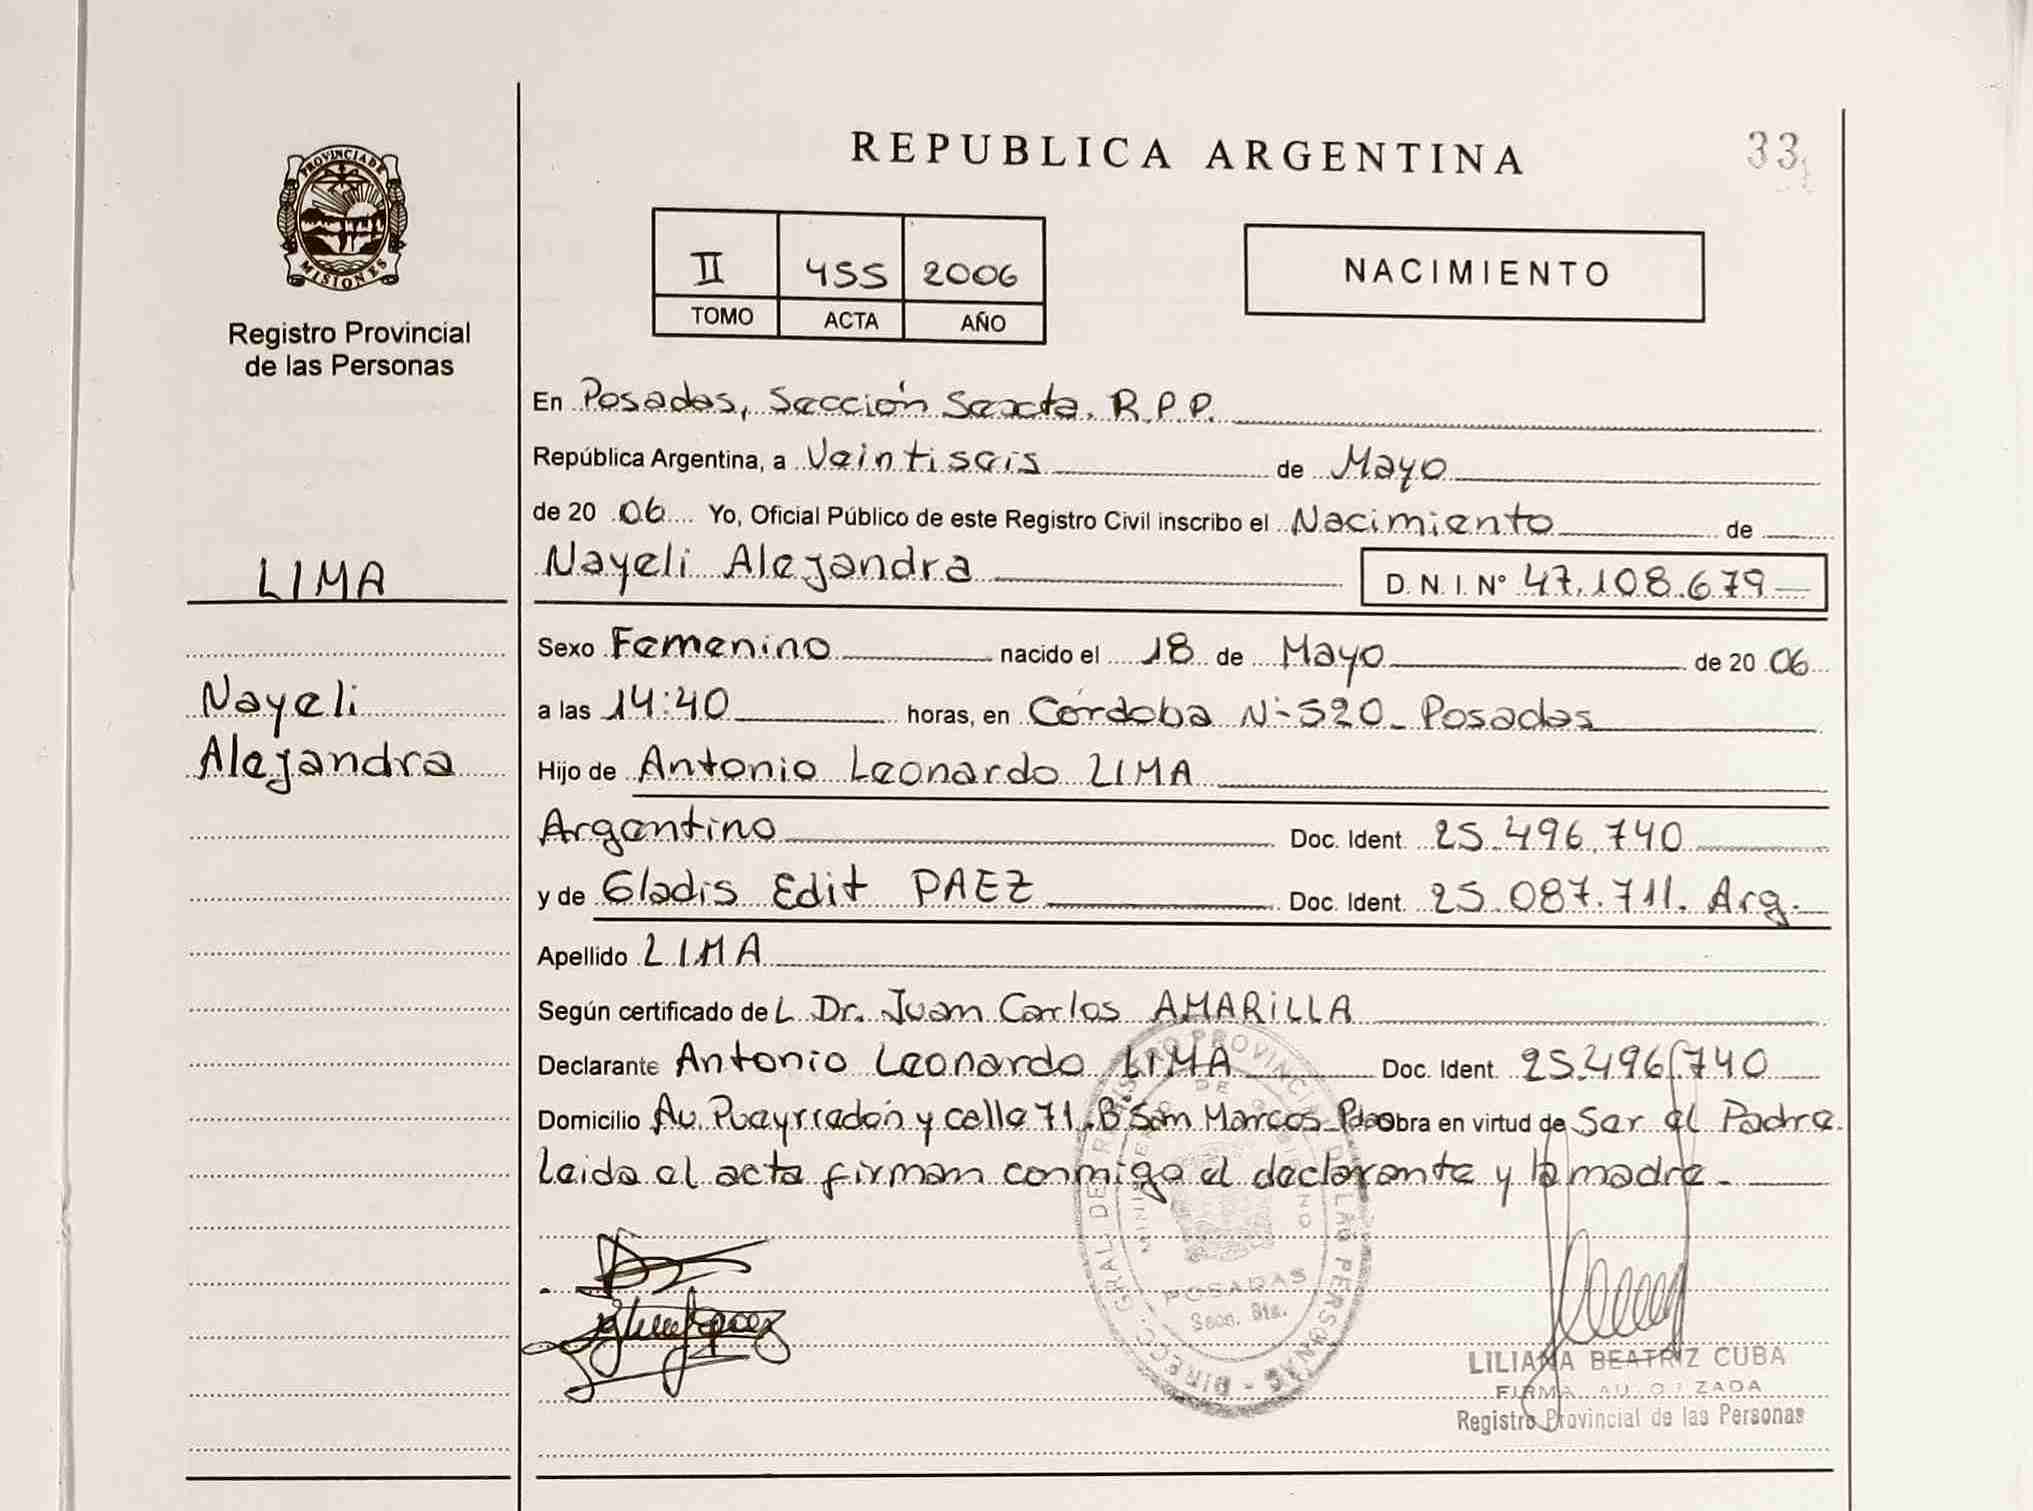 REPUBLICA ARGENTINA
33
PROVINCIA DE
MISIONES
Registro Provincial
de las Personas
II 455 2006
TOMO ACTA AÑO
NACIMIENTO
En Posadas, Sección Sexta. R.P.P.
República Argentina, a Veintiseis de Mayo
de 20 06 Yo, Oficial Público de este Registro Civil inscribo el Nacimiento de
LIMA
Nayeli Alejandra D. N. I. Nº 47.108.679
Sexo Femenino nacido el 18 de Mayo de 20 06
Nayeli
Alejandra
a las 14:40 horas, en Córdoba Nº 520 Posadas
Hijo de Antonio Leonardo LIMA
Argentino Doc. Ident. 25.496.740
y de Gladis Edit PAEZ Doc. Ident. 25.087.711. Arg.
Apellido LIMA
Según certificado de L Dr. Juan Carlos AMARiLLA
Declarante Antonio Leonardo LIMA Doc. Ident. 25.496.740
Domicilio Av. Pueyrredón y calle 71. Bº San Marcos obra en virtud de Ser el Padre.
Leida el acta firman conmigo el declarante y la madre.
DIRECC. GRAL DE REGISTRO PROVINCIAL DE LAS PERSONAS
MINISTERIO DE GOBIERNO
POSADAS
Secc. 6ta.
LILIANA BEATRIZ CUBA
FIRMA AUTORIZADA
Registro Provincial de las Personas